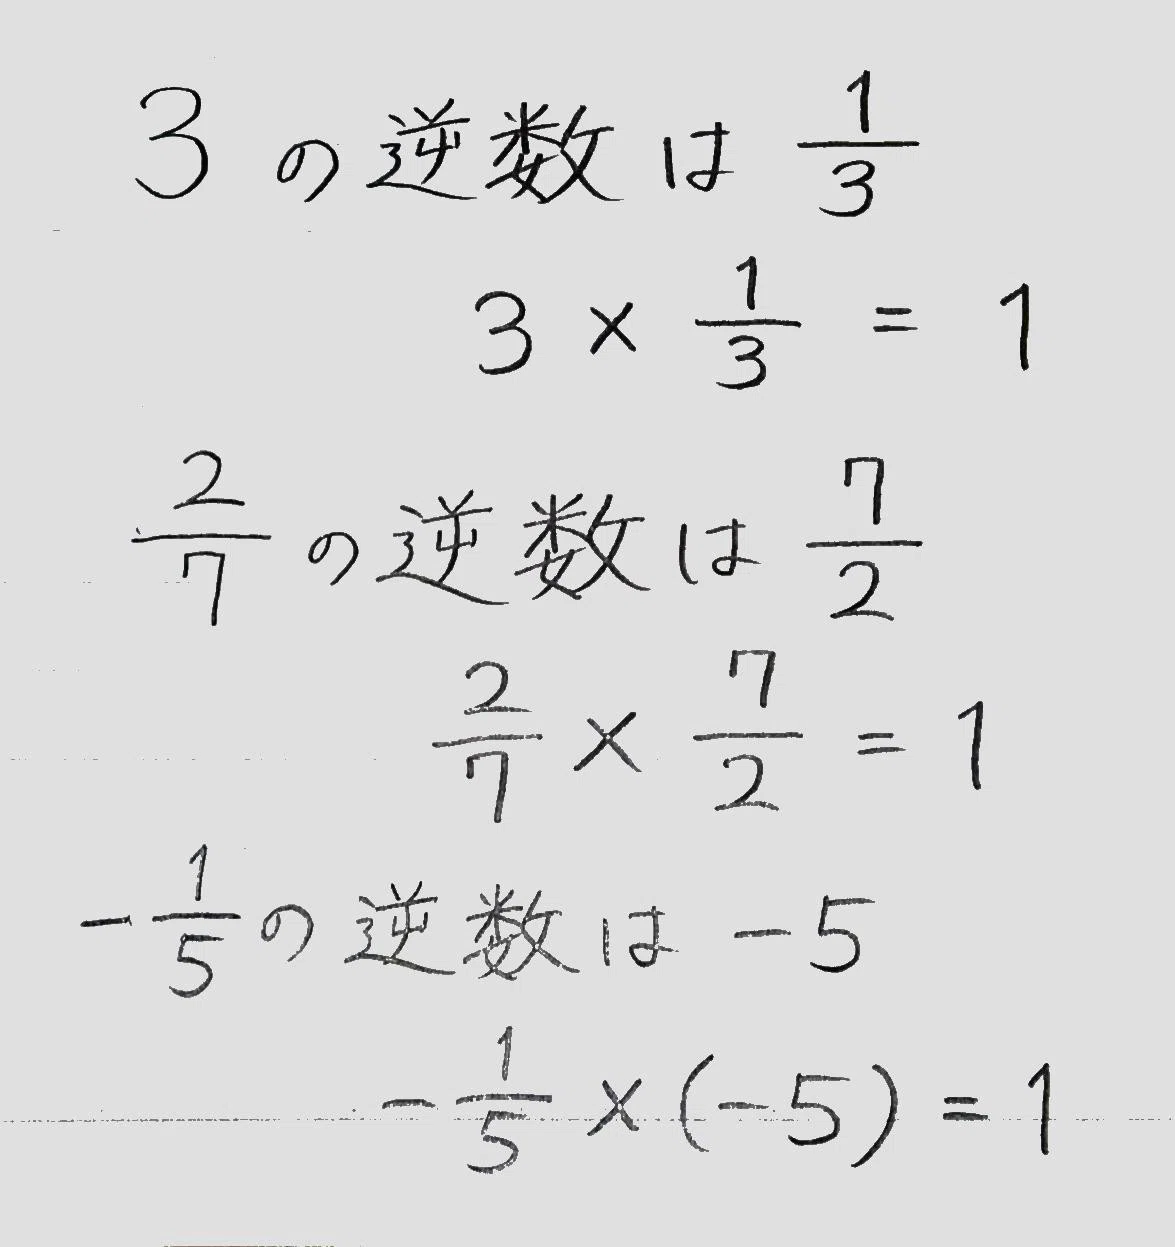 3の逆数は 1/3
3 × 1/3 = 1
2/7の逆数は 7/2
2/7 × 7/2 = 1
-1/5の逆数は -5
-1/5 × (-5) = 1